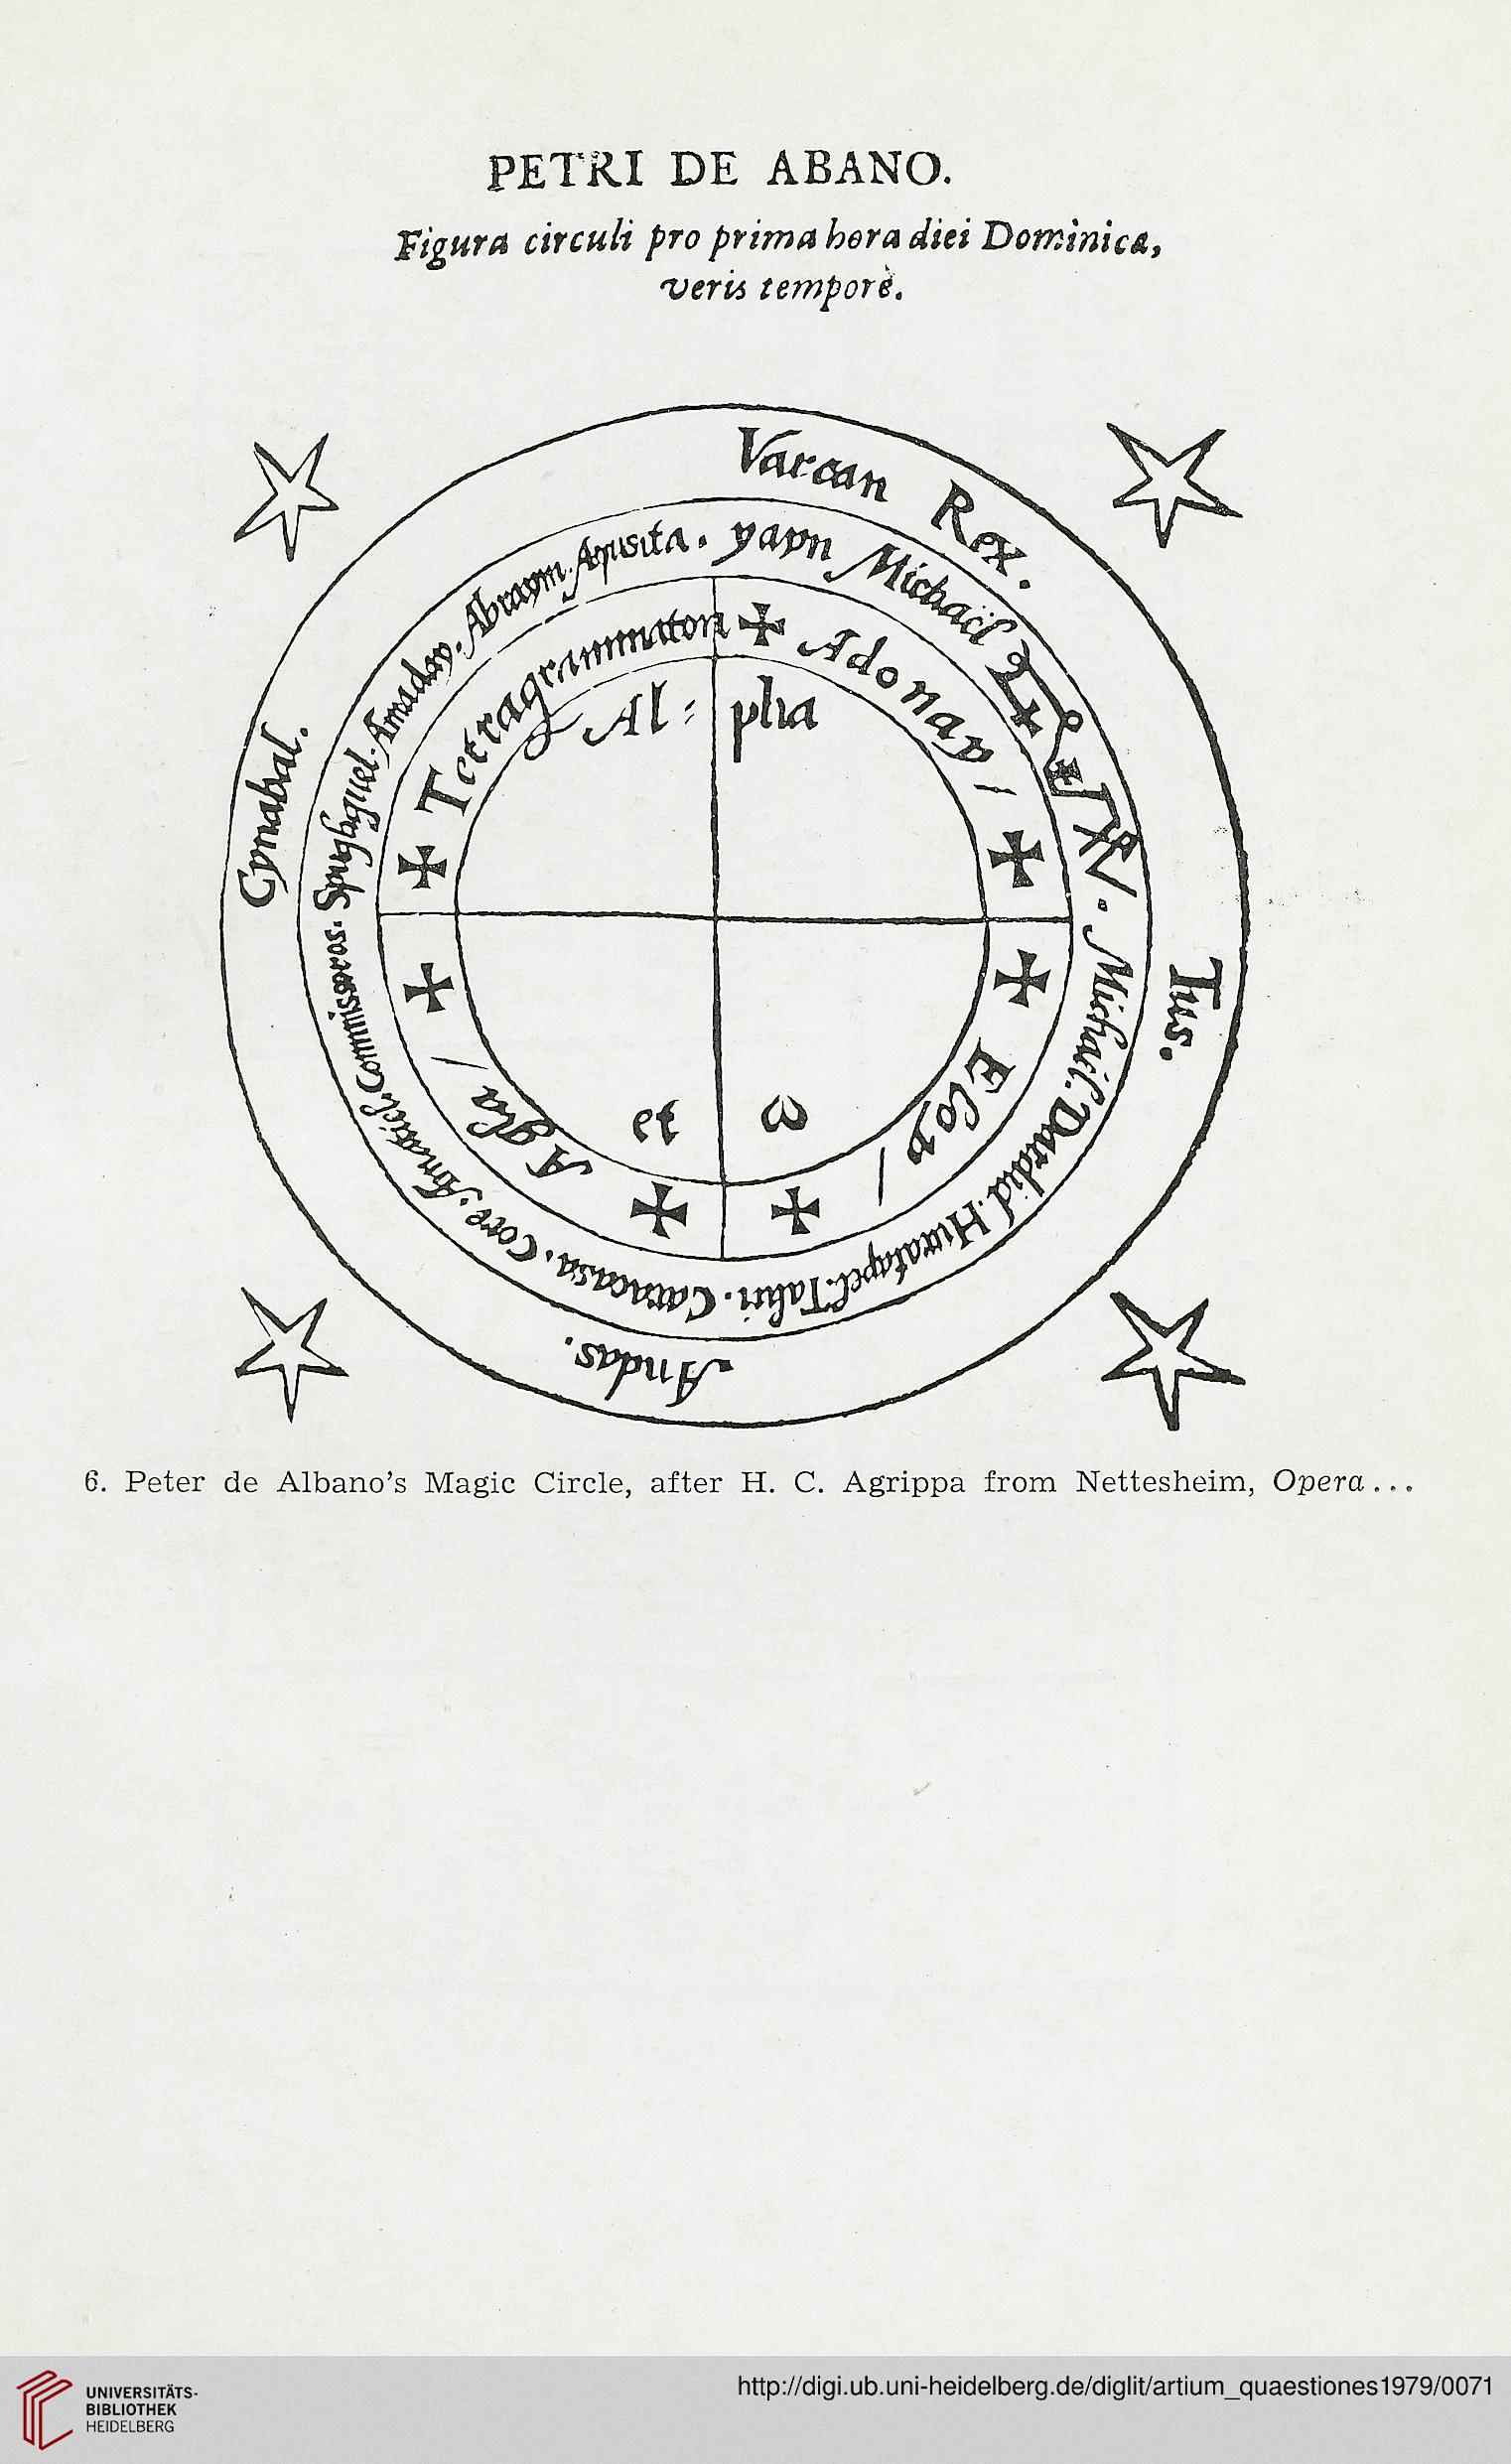 PETRI DE ABANO.
Figura circuli pro prima hora diei Dominicæ,
veris tempore.
Varcan Rex.
Tus.
Andas.
Cynabal.
yayn Michaël
. Michael. Dardiel. Huratapel. Tahri. Caracasa. Core. Amatiel. Commissoros. Spugliguel. Amaday. Abraym. Aqusita.
✠ Adonay / ✠
✠ Eloy / ✠
✠ Agla / ✠
✠ Tetragrammaton
Al= pha
et ω
6. Peter de Albano’s Magic Circle, after H. C. Agrippa from Nettesheim, Opera...
UNIVERSITÄTS-
BIBLIOTHEK
HEIDELBERG
http://digi.ub.uni-heidelberg.de/diglit/artium_quaestiones1979/0071